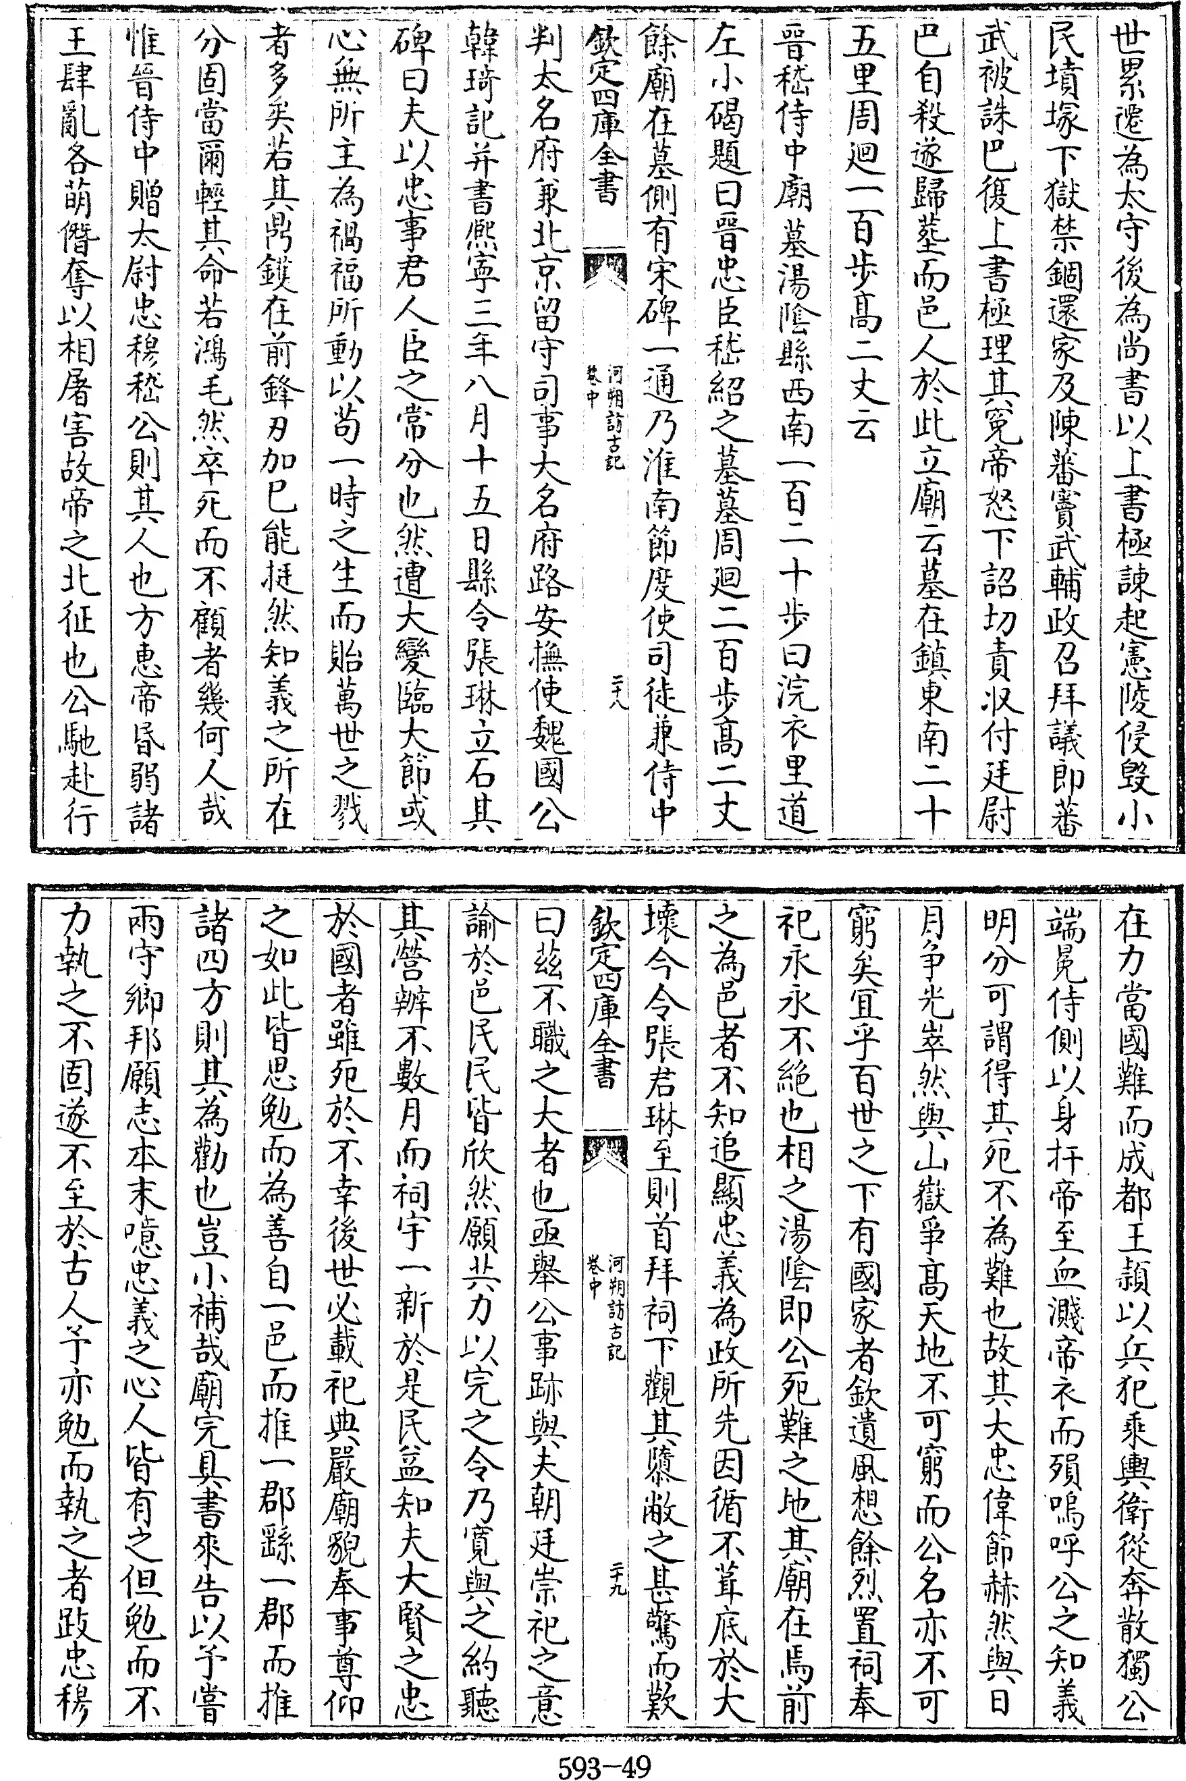 世累遷為太守後為尚書以上書極諫起憲陵侵毀小
民墳塚下獄禁錮還家及陳蕃竇武輔政召拜議郎蕃
武被誅巴復上書極理其冤帝怒下詔切責収付廷尉
巴自殺遂歸葬而邑人於此立廟云墓在鎮東南二十
五里周廻一百步髙二丈云
晉嵇侍中廟墓湯陰縣西南一百二十步曰浣衣里道
左小碣題曰晋忠臣嵇紹之墓墓周廻二百步髙二丈
餘廟在墓側有宋碑一通乃淮南節度使司徒兼侍中
欽定四庫全書
河朔訪古記
卷中
二十八
判太名府兼北京留守司事大名府路安撫使魏國公
韓琦記并書熈寧三年八月十五日縣令張琳立石其
碑曰夫以忠事君人臣之常分也然遭大變臨大節或
心無所主為禍福所動以苟一時之生而貽萬世之戮
者多矣若其鼎鑊在前鋒刃加已能挺然知義之所在
分固當爾輕其命若鴻毛然卒死而不顧者幾何人哉
惟晉侍中贈太尉忠穆嵇公則其人也方惠帝昏弱諸
王肆亂各萌僭奪以相屠害故帝之北征也公馳赴行
在力當國難而成都王頴以兵犯乘輿衛從奔散獨公
端冕侍側以身扞帝至血濺帝衣而殞嗚呼公之知義
明分可謂得其死不為難也故其大忠偉節赫然與日
月争光崒然與山嶽爭髙天地不可窮而公名亦不可
窮矣宜乎百世之下有國家者欽遺風想餘烈置祠奉
祀永永不絶也相之湯陰即公死難之地其廟在焉前
之為邑者不知追顯忠義為政所先因循不葺底於大
壞今令張君琳至則首拜祠下觀其隳敝之甚驚而歎
欽定四庫全書
河朔訪古記
卷中
二十九
曰兹不職之大者也亟舉公事跡與夫朝廷崇祀之意
諭於邑民民皆欣然願共力以完之令乃寛與之約聽
其營辦不數月而祠宇一新於是民益知夫大賢之忠
於國者雖死於不幸後世必載祀典嚴廟貌奉事尊仰
之如此皆思勉而為善自一邑而推一郡繇一郡而推
諸四方則其為勸也豈小補哉廟完具書來告以予嘗
兩守鄉邦願志本末噫忠義之心人皆有之但勉而不
力執之不固遂不至於古人予亦勉而執之者跂忠穆
593-49